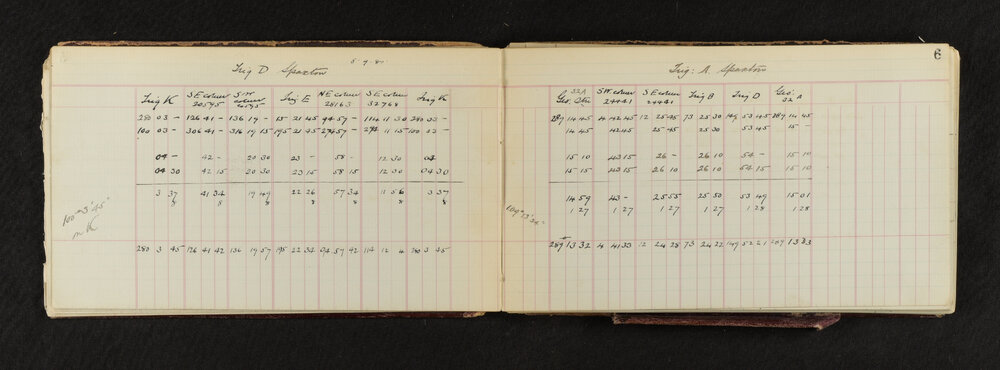 Trig D Spaxton
Trig K S E corner 20595 S W corner 20595 Trig E N E corner 28163 S E corner 32768 Trig K
280 03 – 126 41 – 136 19 – 15 21 45 94 57 – 114 11 30 280 03 –
100 03 – 306 41 – 316 19 15 195 21 45 274 57 – 294 11 15 100 03 –
04 – 42 – 20 30 23 – 58 – 12 30 04
04 30 42 15 20 30 23 15 58 15 12 30 04 30
3 37 41 34 19 49 22 26 57 34 11 56 3 37
8 8 8 8 8 8 8
280 3 45 126 41 42 136 19 57 195 22 34 94 57 42 114 12 4 280 3 45
100° 3' 45"
6
Trig: A Spaxton
32A Geo: Stn S W corner 24441 S E corner 24441 Trig B Trig D Geo: 32 A
289 14 45 4 42 45 12 25 45 73 25 30 149 53 45 289 14 45
14 45 42 45 25 45 25 30 53 45 15 –
15 10 43 15 26 – 26 10 54 – 15 10
15 15 43 15 26 10 26 10 54 15 15 10
14 59 43 – 25 55 25 50 53 49 15 01
1 27 1 27 1 27 1 27 1 28 1 28
289 13 32 4 41 33 12 24 28 73 24 22 149 52 21 289 13 33